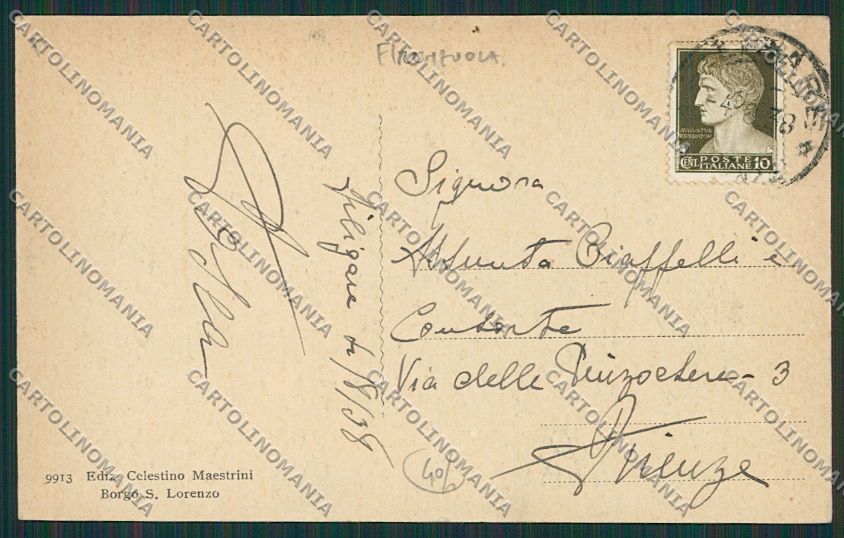 FIRENZUOLA
AUGUSTVS
CENT. POSTE ITALIANE 10
Signora
Assunta Ciaffelli e
Consorte
Via delle Pinzochere - 3
Firenze
Filigare 4/8/38
40/
9913 Ediz. Celestino Maestrini
Borgo S. Lorenzo
CARTOLINOMANIA